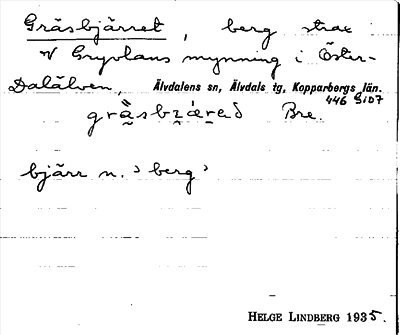 Gräsbjärret, berg strax
N Gryvlans mynning i Öster-
Dalälven, Älvdalens sn, Älvdals tg, Kopparbergs län.
446 S107
Bre.
bjärr n. 'berg'
HELGE LINDBERG 1935.